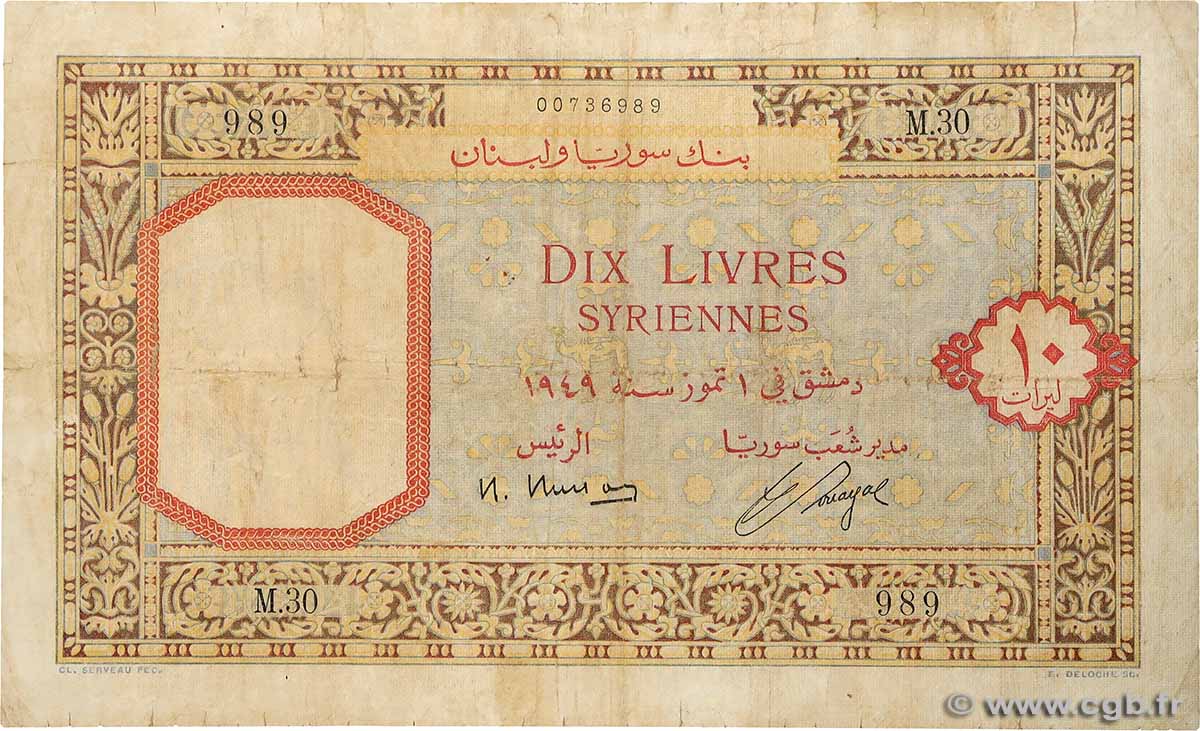 00736989
989
M.30
بنك سوريا ولبنان
DIX LIVRES
SYRIENNES
١٠
ليرات
دمشق في ١ تموز سنة ١٩٤٩
مدير شُعَب سوريّا
الرئيس
M.30
989
CL. SERVEAU FEC.
E. DELOCHE SC.
© www.cgb.fr